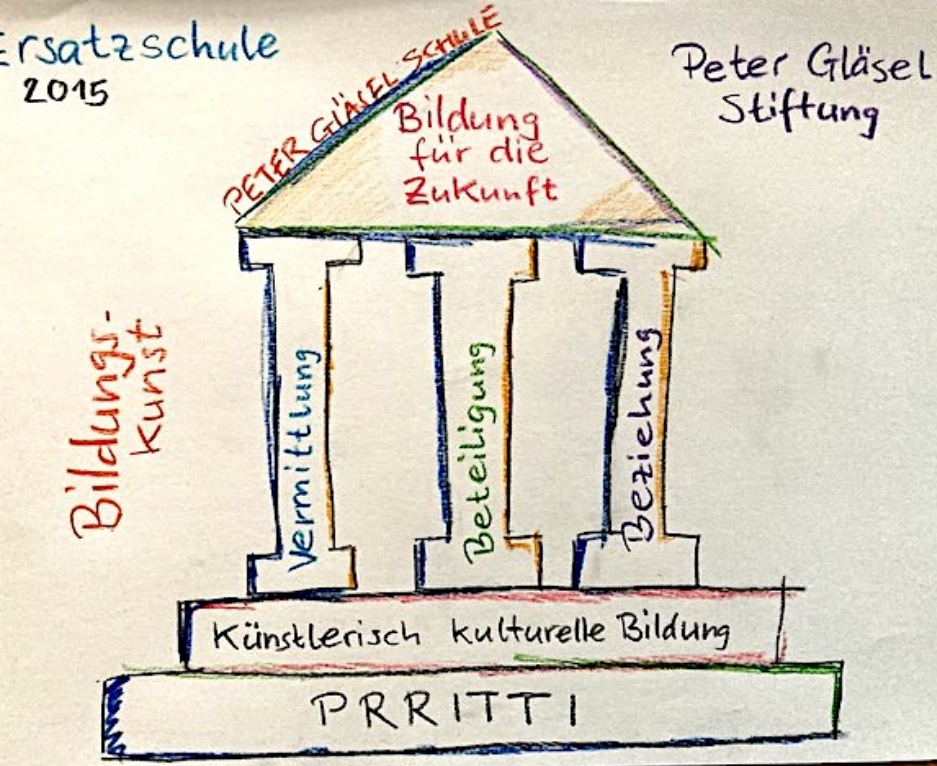 Ersatzschule
2015
Peter Gläsel
Stiftung
PETER GLÄSEL SCHULE
Bildung
für die
Zukunft
Bildungs-
Kunst
Vermittlung
Beteiligung
Beziehung
Künstlerisch kulturelle Bildung
PRRITTI